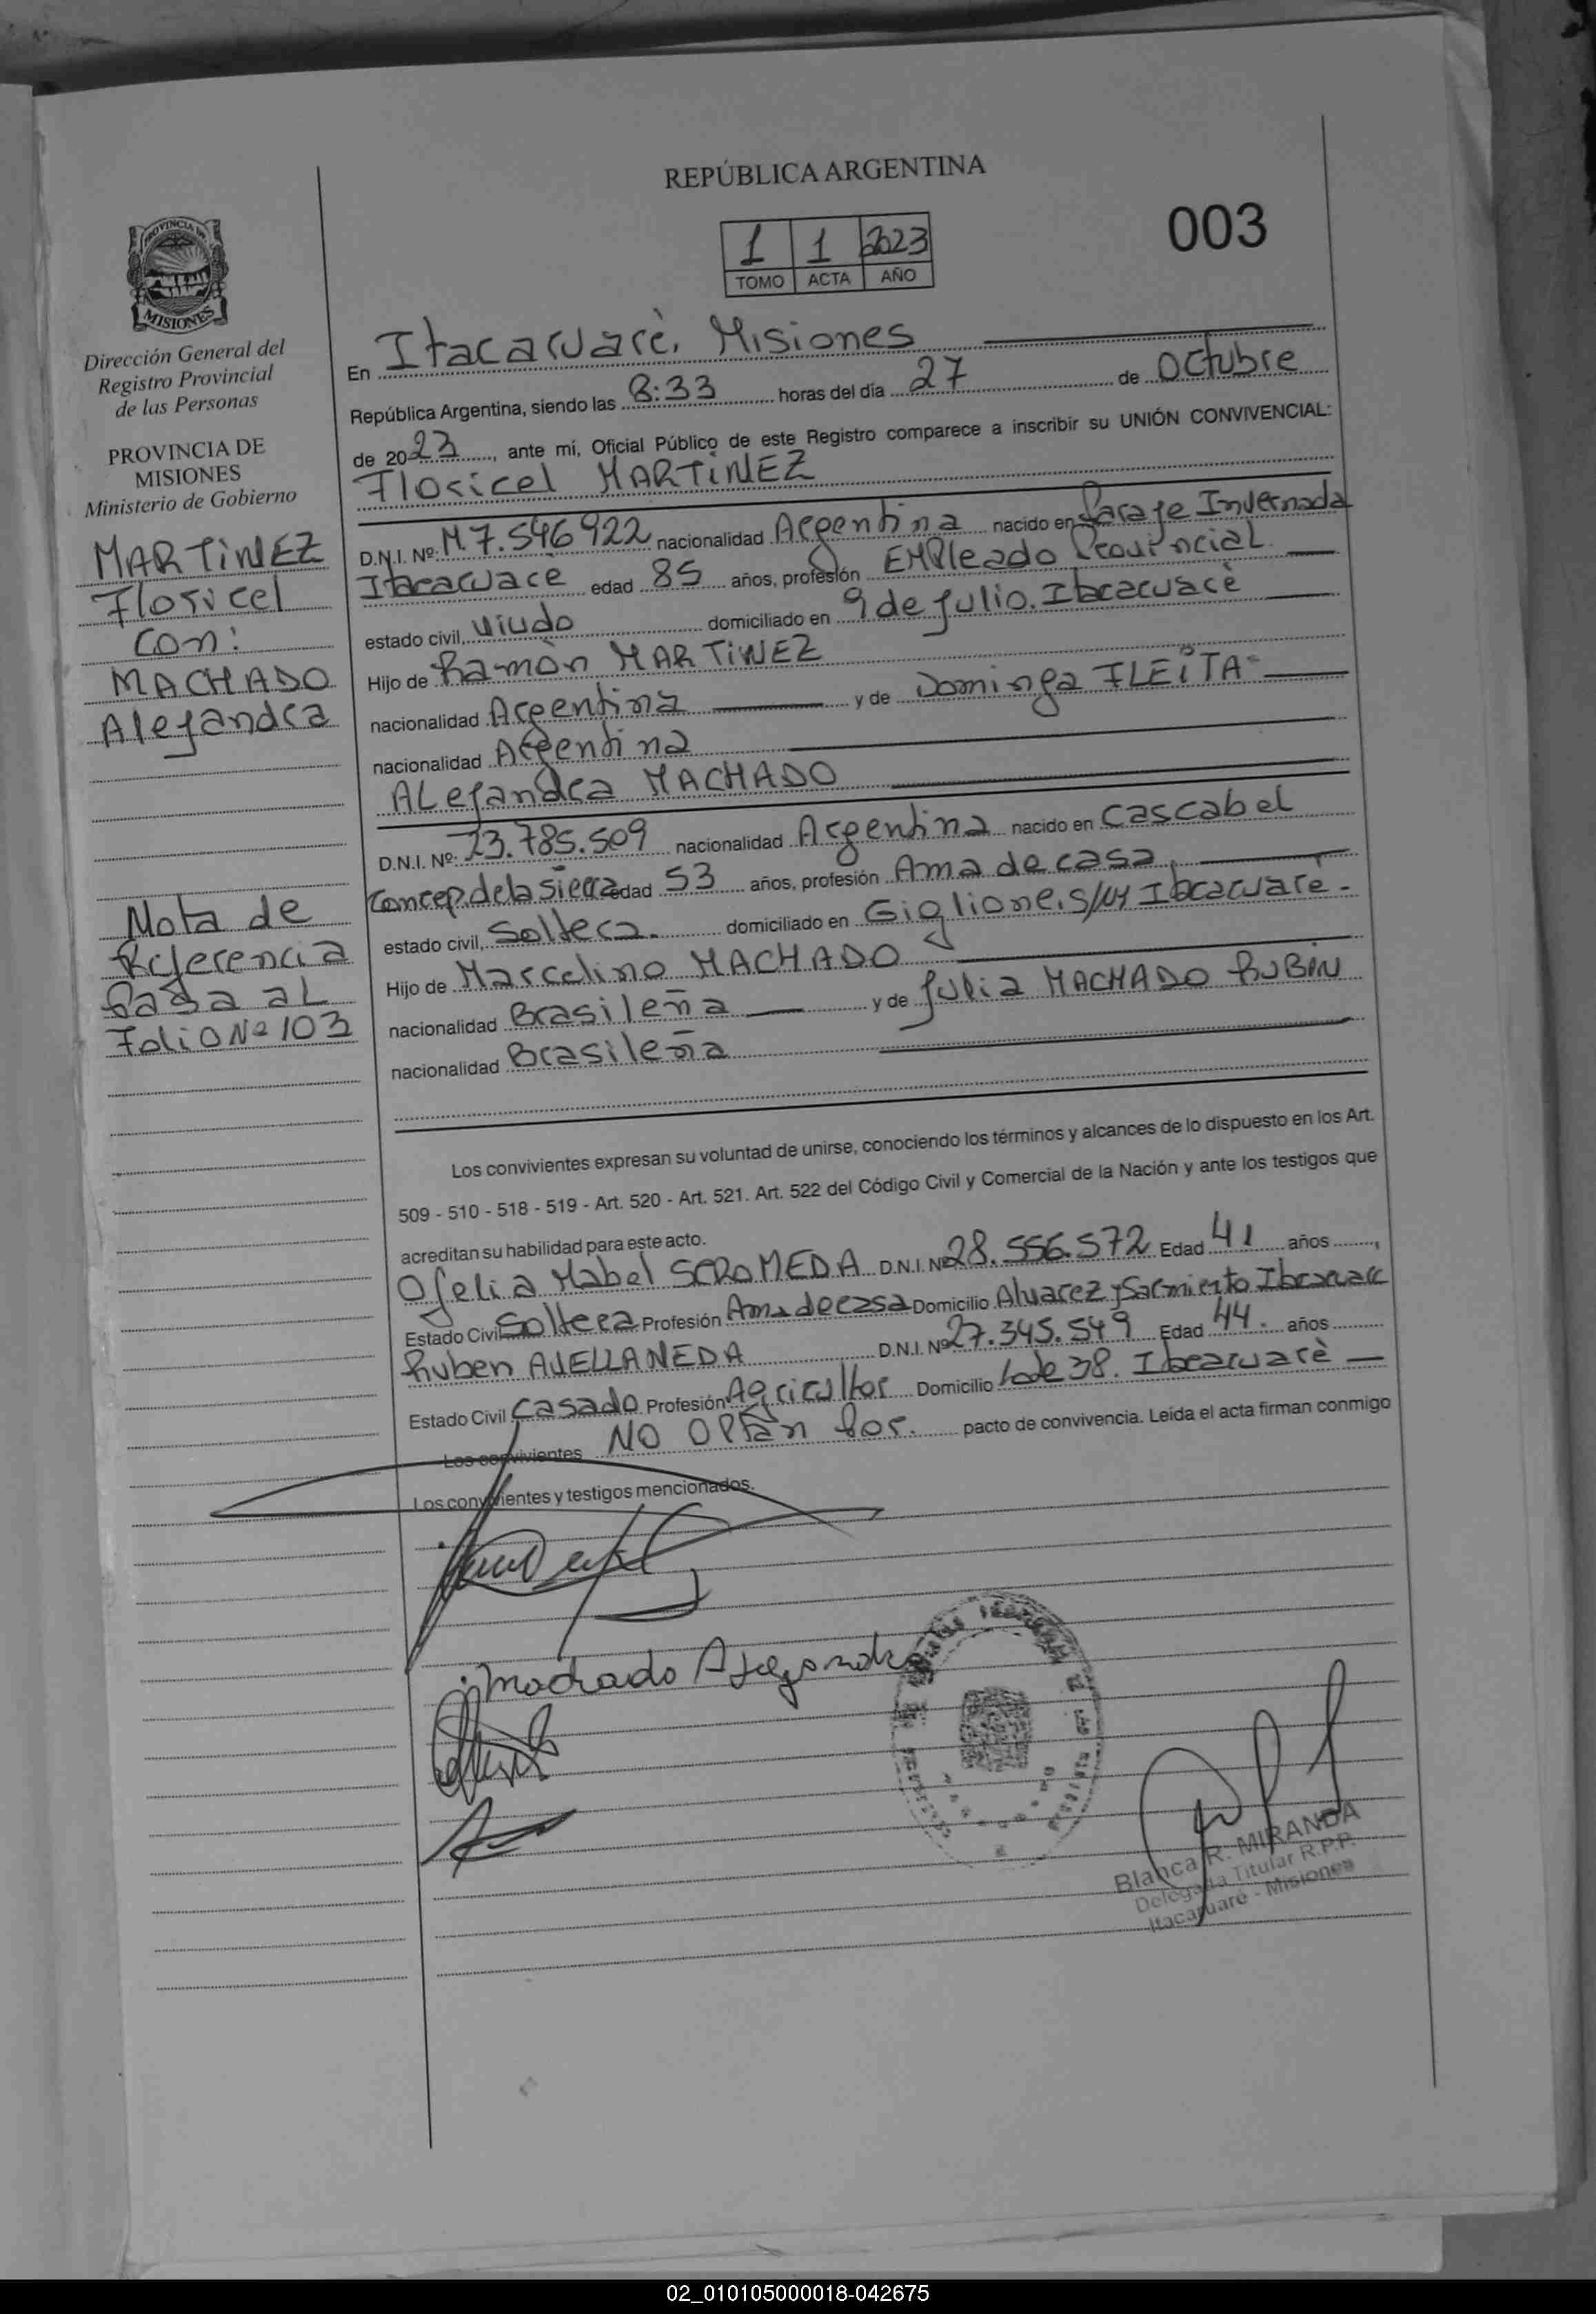 REPÚBLICA ARGENTINA
003
1 1 2023
TOMO ACTA AÑO
PROVINCIA DE
MISIONES
Dirección General del
Registro Provincial
de las Personas
PROVINCIA DE
MISIONES
Ministerio de Gobierno
MARTINEZ
Floricel
Con:
MACHADO
Alejandra
Nota de
Referencia
Pasa aL
Folio Nº 103
En Itacaruarè, Misiones
República Argentina, siendo las 8:33 horas del día 27 de Octubre
de 2023, ante mí, Oficial Público de este Registro comparece a inscribir su UNIÓN CONVIVENCIAL:
Floricel MARTINEZ
D.N.I. Nº: M7.546922 nacionalidad Argentina nacido en Paraje Invernada
Itacaruarè edad 85 años, profesión EMPleado Provincial
estado civil, Viudo domiciliado en 9 de Julio. Itacaruarè
Hijo de Ramòn MARTINEZ
nacionalidad Argentina y de Dominga FLEITA
nacionalidad Argentina
ALejandra MACHADO
D.N.I. Nº: 23.785.509 nacionalidad Argentina nacido en Cascabel
Concep. de la Sierra edad 53 años, profesión Ama de casa,
estado civil, Soltera. domiciliado en Giglione, S/Nº Itacaruarè.
Hijo de Marcelino MACHADO
nacionalidad Brasileña y de Julia MACHADO RUBIN
nacionalidad Brasileña
Los convivientes expresan su voluntad de unirse, conociendo los términos y alcances de lo dispuesto en los Art.
509 - 510 - 518 - 519 - Art. 520 - Art. 521. Art. 522 del Código Civil y Comercial de la Nación y ante los testigos que
acreditan su habilidad para este acto.
Ofelia Mabel SCROMEDA D.N.I. Nº 28.556.572 Edad 41 años,
Estado Civil Soltera Profesión Ama de casa Domicilio Alvarez y Sarmiento Itacaruare
Ruben AVELLANEDA D.N.I. Nº 27.345.549 Edad 44. años
Estado Civil Casado Profesión Agricultor Domicilio Lote 38. Itacaruarè
Los convivientes NO OPTan Por. pacto de convivencia. Leída el acta firman conmigo
Los convivientes y testigos mencionados.
Machado Alejandra
Blanca R. MIRANDA
Delegada Titular R.P.P.
Itacaruaré - Misiones
02_010105000018-042675